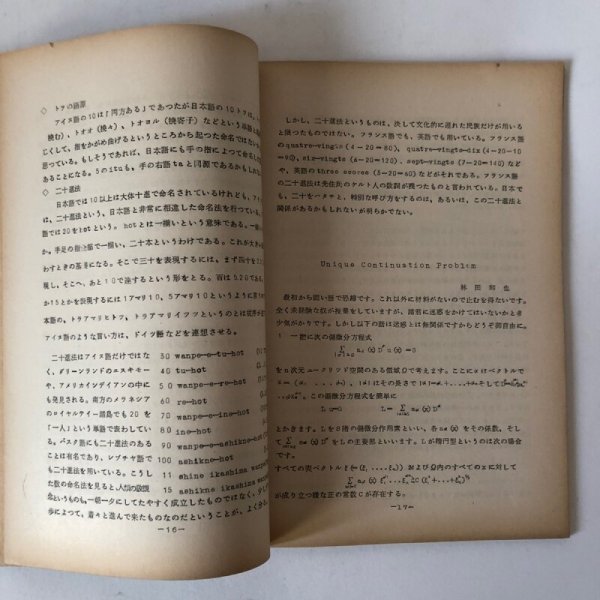 ◇ トヲの語源
アイヌ語の10は「両方ある」であつたが日本語の10トヲは、
挾む)、トオオ(撓々)、トオヨル(撓寄子)などという単語と
じくして、指をかがめ曲げるというところから起つた命名ではないか
思つている。もしそうであれば、日本語にも手の指によつて命名し
あることになる。5のituも、手の右語taと同源であるかもしれ
◇ 二十進法
日本では10以上は大体十進で命名されているけれども、アイ
は、二十進法という、日本語と非常に相違した命名法を行つている。
語では20をhotという。hotとは一揃いという意味である。一揃
か、手足の指全部で一揃い、二十本というわけである。これが大き
わすときの基準になる。そこで三十を表現するには、まず四十を
現し、そこへ、あと10で達するという形をとる。百はり20である。
か15とかを表現するには1アマリ10、5アマリ10というように言う
本語の、トヲアマリヒトフ、トヲアマリイツツというのとは
アイヌ語のような言い方は、ドイツ語などを連想させる。
二十進法はアイヌ語だけではな
く、グリーンランドのエスキモー
や、アメリカインデイアンの中に
も発見される。南方のメラネシア
のロイヤルテイー諸島でも20を
「一人」という単語で表わしてい
る。バスク語にも二十進法のある
ことは有名であり、レプチヤ語で
も二十進法を用いている。こうし
た数の命名法を見ると、人類の数観
念というものも、一朝一夕にしてたやすく成立したものではなく、少し
歩によつて、着々と進んで来たものなのだということが、よく分
30 wanpe-e-tu-hot
40 tu-hot
50 wanpe-e-re-hot
60 re-hot
70 wanpe-e-ine-hot
80 ine-hot
90 wanpe-e-ashikne-hot
100 ashikne-hot
11 shine ikashima wanpe
15 ashikne ikashima wanpe
—16—
しかし、二十進法というものは、決して文化的に遅れた民族だけが用いる
と限つたものではない。フランス語でも、英語でも用いている。フランス語
のquatre-vingts (4-20=80)、quatre-vingts-dix (4-20-10
=90)、six-vingts (6-20=120)、sept-vingts (7-20=140)など
や、英語のthree scores (3-20=60)などがそれである。フランス語
の二十進法は先住民のケルト人の数詞が残つたものと言われている。日本で
も、二十をハタチと、特別な呼び方をするのは、あるいは、この二十進法と
関係があるかもしれないが明らかでない。
Unique Continuation Problem
林田和也
最初から固い話で恐縮です。これ以外に材料がないので止むを得ないです。
全く未経験な奴が授業をしていますが、諸君に迷惑をかけてはいないかと多
少気がかりです。しかし以下の話は迷惑とは無関係ですからどうぞ御自由に。
1 一階に次の偏微分方程式
Σ aα (x) Dα u (x) = 0
をn次元ユークリツド空間のある領域Ωで考えます。ここにαはベクトルで
とかきます。Lを偏微分作用素といい、各aα(x)をその係数、そし
をLの主要部といいます。Lが楕円型というのは次の場合
です。
すべての実ベクトルξ=(ξ₁, ...ξₙ) およびΩ内のすべてのxに対して
が成り立つ様な正の常数Cが存在する。
—17—